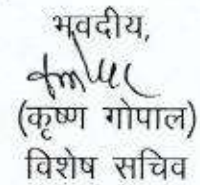 भवदीय,
(कृष्ण गोपाल)
विशेष सचिव